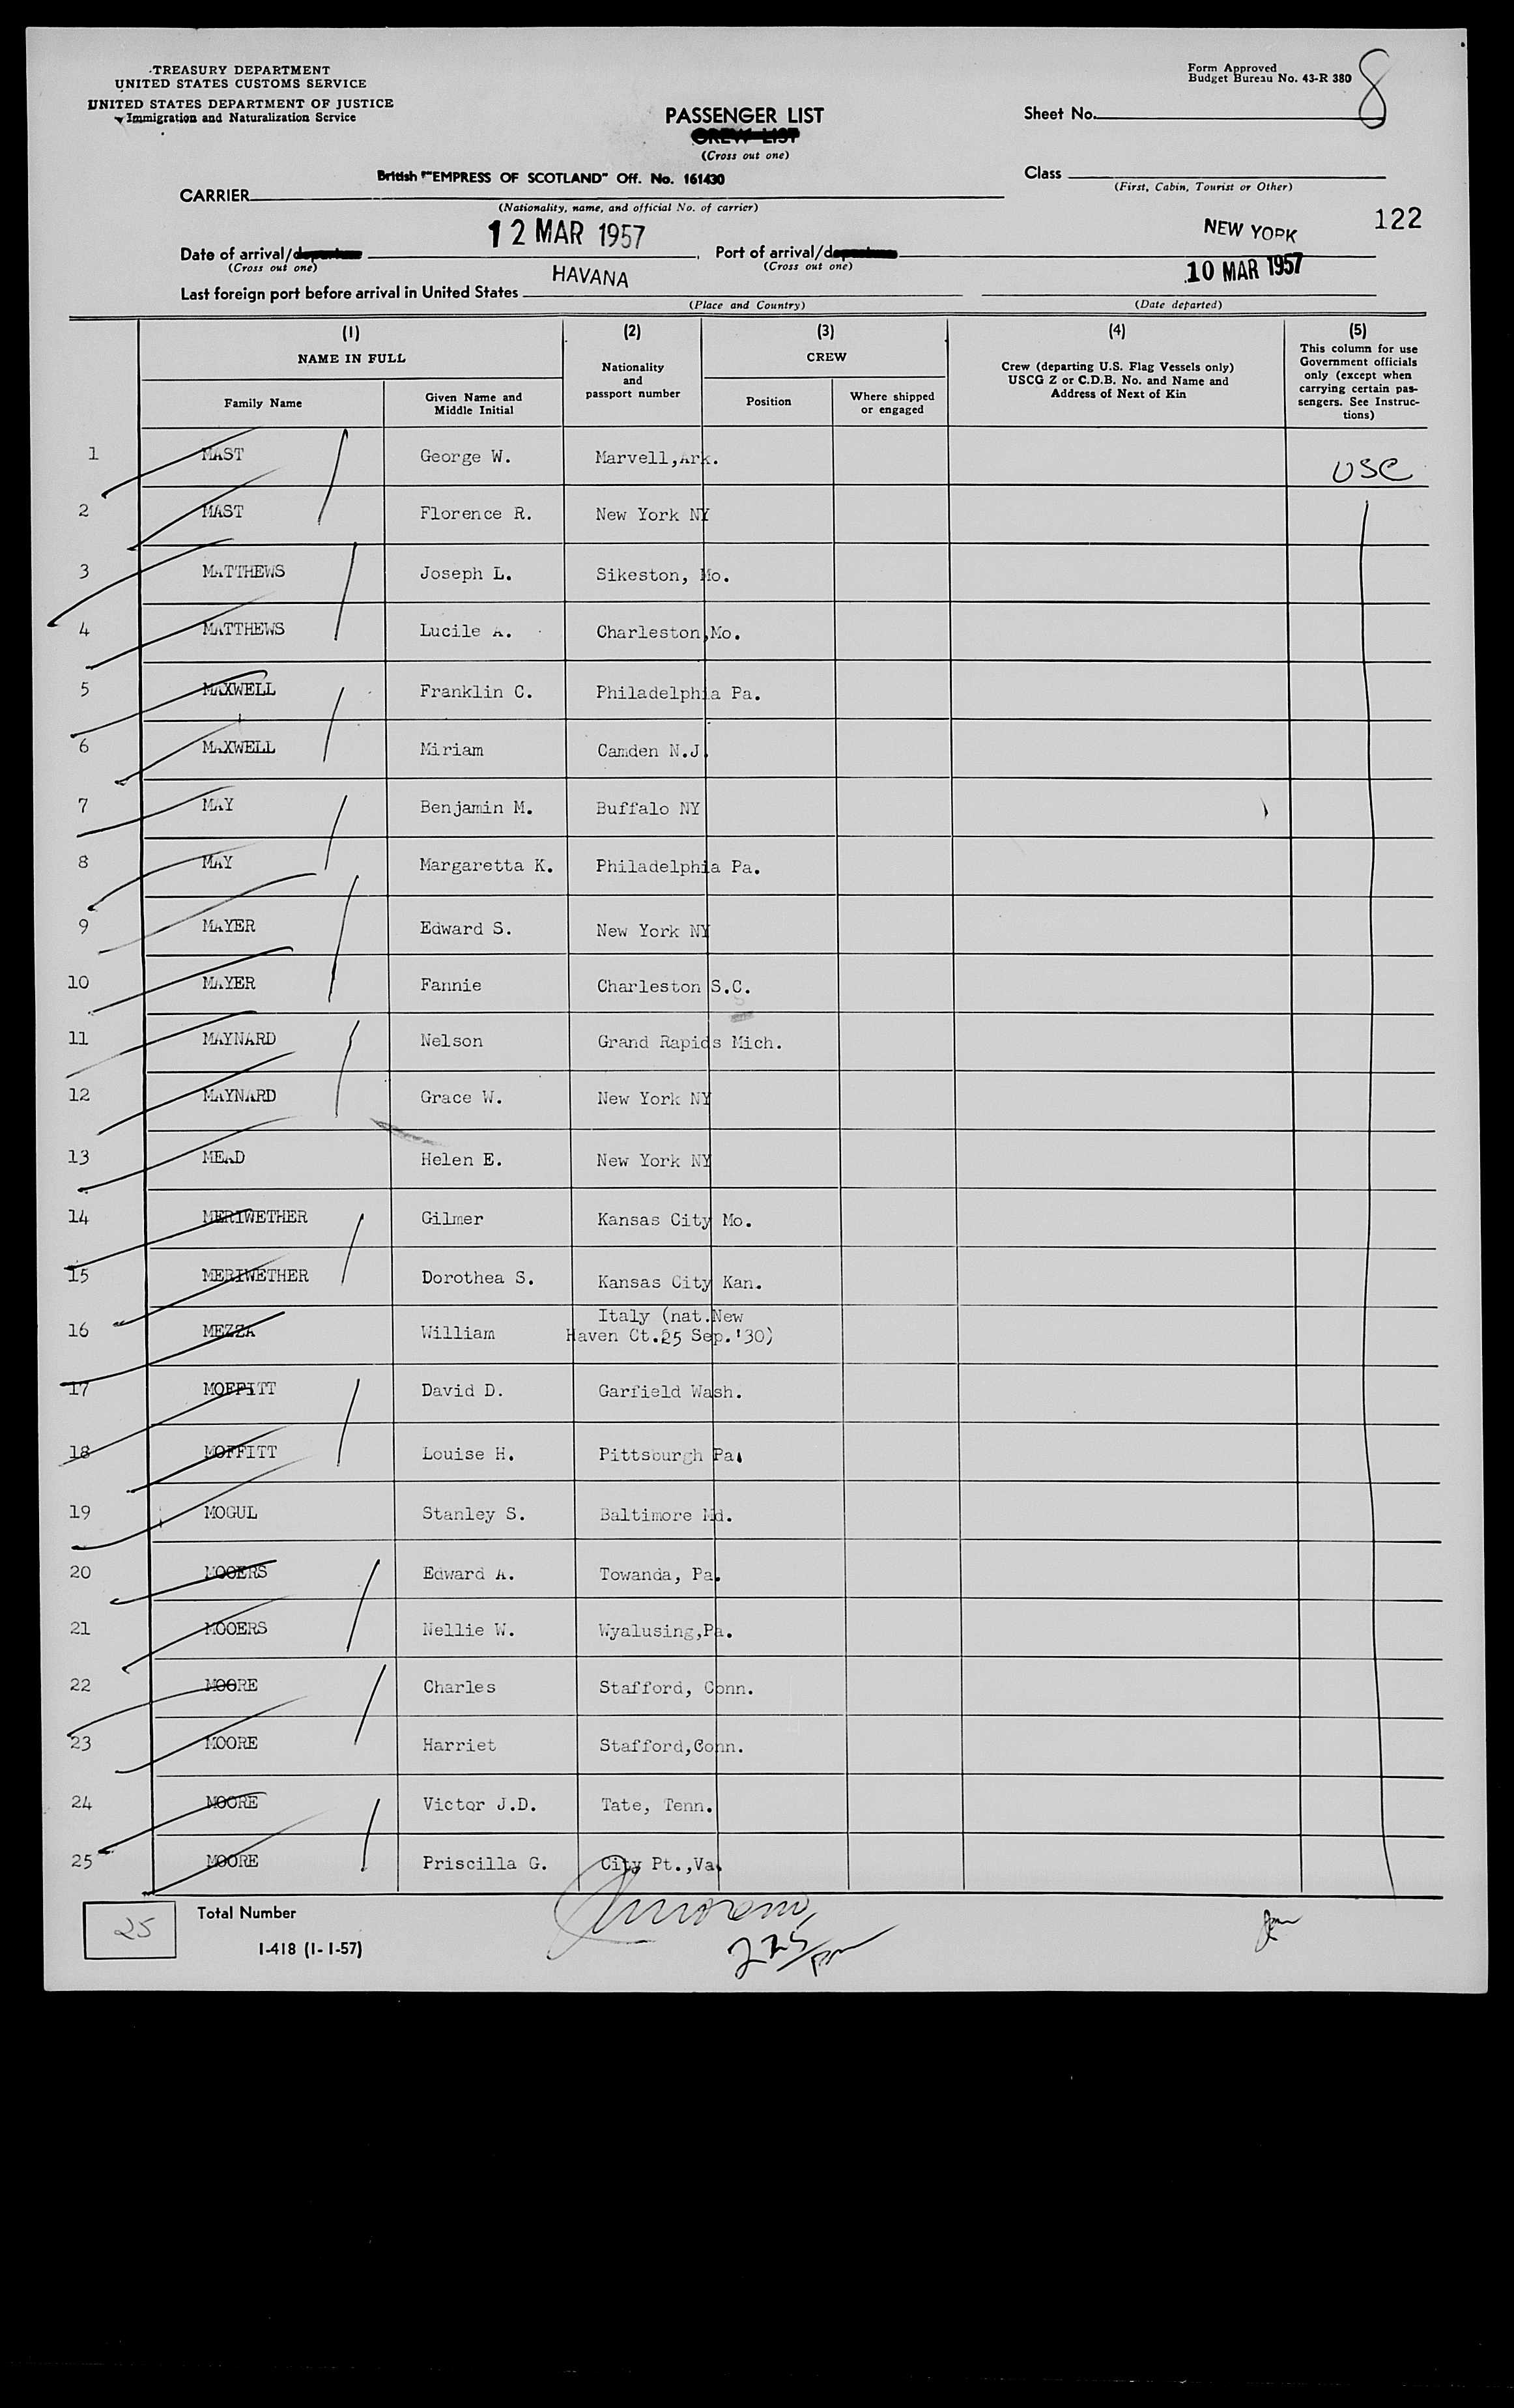 TREASURY DEPARTMENT
UNITED STATES CUSTOMS SERVICE
UNITED STATES DEPARTMENT OF JUSTICE
Immigration and Naturalization Service
Form Approved
Budget Bureau No. 43-R 380
PASSENGER LIST
CREW LIST
(Cross out one)
Sheet No. 8
Class
(First, Cabin, Tourist or Other)
CARRIER British "EMPRESS OF SCOTLAND" Off. No. 161430
(Nationality, name, and official No. of carrier)
122
Date of arrival/departure 12 MAR 1957, Port of arrival/departure NEW YORK
(Cross out one) (Cross out one)
Last foreign port before arrival in United States HAVANA 10 MAR 1957
(Place and Country) (Date departed)
(1) (2) (3) (4) (5)
NAME IN FULL
Family Name
Given Name and
Middle Initial
Nationality
and
passport number
CREW
Position
Where shipped
or engaged
Crew (departing U.S. Flag Vessels only)
USCG Z or C.D.B. No. and Name and
Address of Next of Kin
This column for use
Government officials
only (except when
carrying certain pas-
sengers. See Instruc-
tions)
1 MAST George W. Marvell,Ark. USC
2 MAST Florence R. New York NY
3 MATTHEWS Joseph L. Sikeston, Mo.
4 MATTHEWS Lucile A. Charleston,Mo.
5 MAXWELL Franklin C. Philadelphia Pa.
6 MAXWELL Miriam Camden N.J.
7 MAY Benjamin M. Buffalo NY
8 MAY Margaretta K. Philadelphia Pa.
9 MAYER Edward S. New York NY
10 MAYER Fannie Charleston S.C.
11 MAYNARD Nelson Grand Rapids Mich.
12 MAYNARD Grace W. New York NY
13 MEAD Helen E. New York NY
14 MERIWETHER Gilmer Kansas City Mo.
15 MERIWETHER Dorothea S. Kansas City Kan.
16 MEZZA William Italy (nat.New
Haven Ct.25 Sep.'30)
17 MOFFITT David D. Garfield Wash.
18 MOFFITT Louise H. Pittsburgh Pa.
19 MOGUL Stanley S. Baltimore Md.
20 MOOERS Edward A. Towanda, Pa.
21 MOOERS Nellie W. Wyalusing,Pa.
22 MOORE Charles Stafford, Conn.
23 MOORE Harriet Stafford,Conn.
24 MOORE Victor J.D. Tate, Tenn.
25 MOORE Priscilla G. City Pt.,Va.
25 Total Number
I-418 (1-1-57)
225